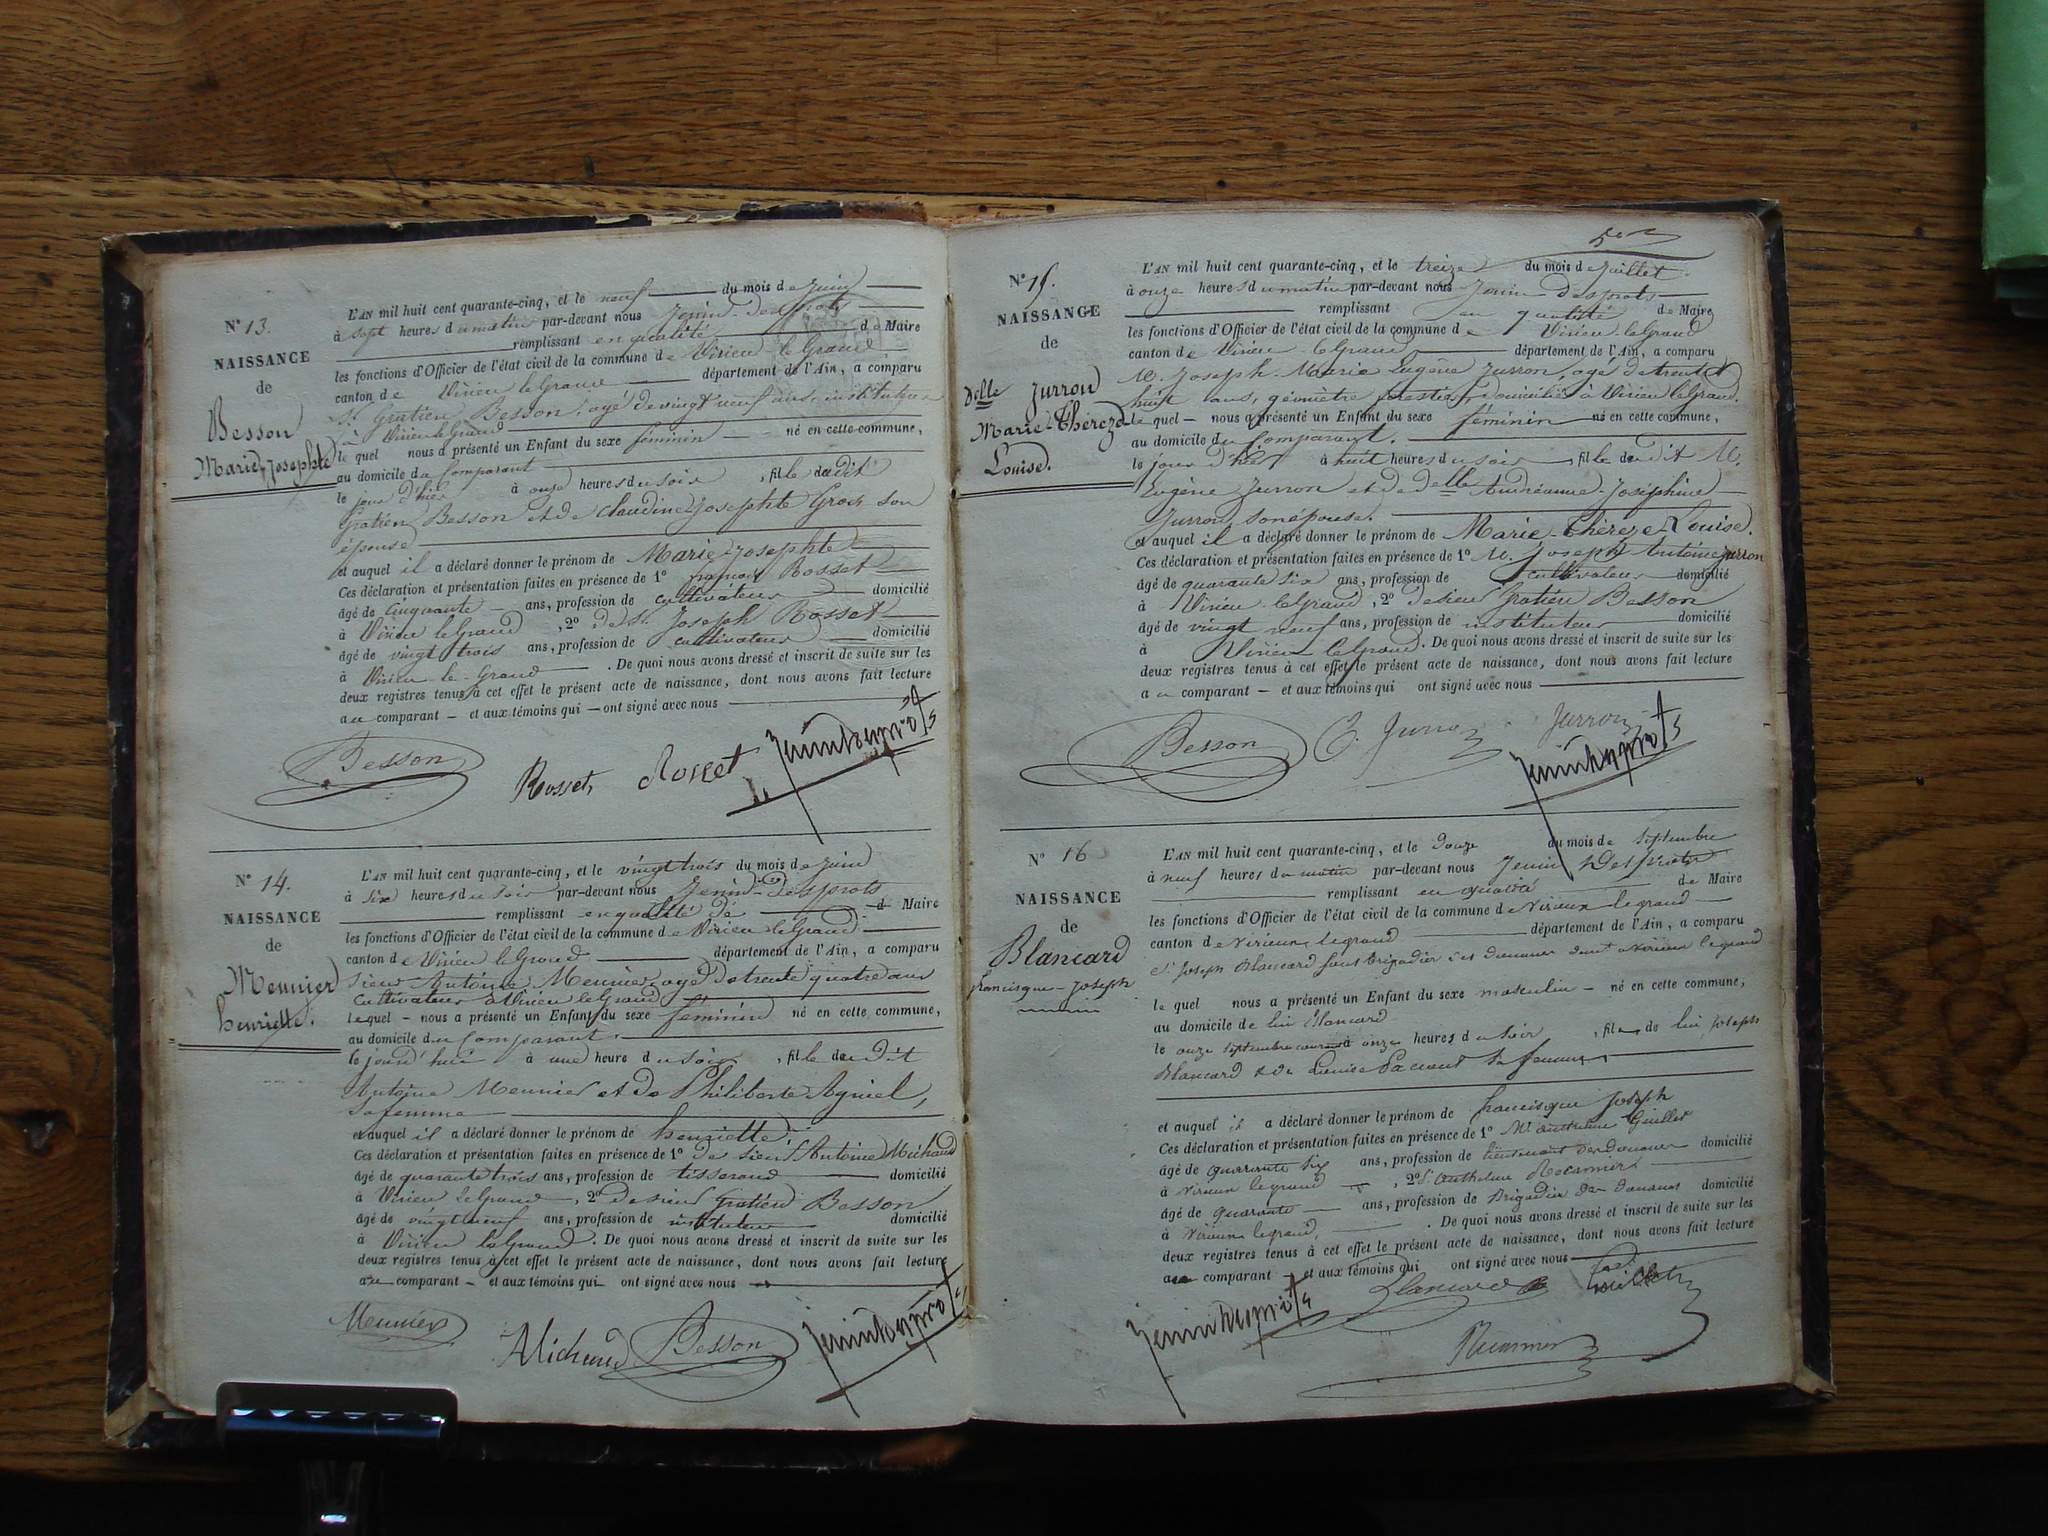 N° 13.
NAISSANCE
de
Besson
Marie Josephte
L'AN mil huit cent quarante-cinq, et le neuf du mois de Juin
à sept heures du matin par-devant nous Jenin-Desprots
remplissant en qualité de Maire
les fonctions d'Officier de l'état civil de la commune de Virieu le Grand
canton de Virieu le Grand département de l'Ain, a comparu
Sr. Gratien Besson, agé de vingt neuf ans, instituteur
à Virieu le Grand
le quel nous a présenté un Enfant du sexe féminin né en cette commune,
au domicile du Comparant
le jour d'hier à onze heures du soir, fille du dit
Gratien Besson et de Claudine Josephte Gros son
épouse
et auquel il a déclaré donner le prénom de Marie Josephte
Ces déclaration et présentation faites en présence de 1° françois Rosset
âgé de Cinquante ans, profession de cultivateur domicilié
à Virieu le Grand, 2° de Sr. Joseph Rosset
âgé de vingt trois ans, profession de cultivateur domicilié
à Virieu-le-Grand. De quoi nous avons dressé et inscrit de suite sur les
deux registres tenus à cet effet le présent acte de naissance, dont nous avons fait lecture
au comparant et aux témoins qui ont signé avec nous
Besson Rosset Rosset Jenindesprots
N° 14.
NAISSANCE
de
Meunier
henriette.
L'AN mil huit cent quarante-cinq, et le vingt trois du mois de Juin
à six heures du soir par-devant nous Jenin-Desprots
remplissant en qualité de d Maire
les fonctions d'Officier de l'état civil de la commune de Virieu le Grand
canton de Virieu le Grand département de l'Ain, a comparu
sieur Antoine Meunier, agé de trente quatre ans
cultivateur à Virieu le Grand
le quel nous a présenté un Enfant du sexe féminin né en cette commune,
au domicile du Comparant.
le jour d'hui à une heure du soir, fille du dit
Antoine Meunier et de Philiberte Agniel,
sa femme
et auquel il a déclaré donner le prénom de henriette.
Ces déclaration et présentation faites en présence de 1° de sieur Antoine Michaud
âgé de quarante trois ans, profession de tisserand domicilié
à Virieu le Grand, 2° de sieur Gratien Besson
âgé de vingt neuf ans, profession de instituteur domicilié
à Virieu le Grand. De quoi nous avons dressé et inscrit de suite sur les
deux registres tenus à cet effet le présent acte de naissance, dont nous avons fait lecture
au comparant et aux témoins qui ont signé avec nous
Meunier Michaud Besson Jenindesprots
N° 15.
NAISSANCE
de
Delle Jurron
Marie-Thérèze
Louise.
L'AN mil huit cent quarante-cinq, et le treize du mois de Juillet
à onze heures du matin par-devant nous Jenin Desprots
remplissant en qualité de Maire
les fonctions d'Officier de l'état civil de la commune de Virieu le Grand
canton de Virieu le Grand département de l'Ain, a comparu
M. Joseph Marie Eugène Jurron, agé de trente
huit ans, géomètre forestier, domicilié à Virieu le Grand.
le quel nous a présenté un Enfant du sexe féminin né en cette commune,
au domicile du Comparant.
le jour d'hier à huit heures du soir, fille du dit M.
Eugène Jurron et de delle Andréanne-Joséphine
Jurron, son épouse.
et auquel il a déclaré donner le prénom de Marie-Thérèze-Louise.
Ces déclaration et présentation faites en présence de 1° M. Joseph Antoine Jurron
âgé de quarante six ans, profession de cultivateur domicilié
à Virieu-le Grand, 2° de sieur Gratien Besson
âgé de vingt neuf ans, profession de instituteur domicilié
à Virieu le Grand. De quoi nous avons dressé et inscrit de suite sur les
deux registres tenus à cet effet le présent acte de naissance, dont nous avons fait lecture
au comparant et aux témoins qui ont signé avec nous
Besson Jurron Jurron
Jenindesprots
N° 16
NAISSANCE
de
Blancard
francisque-Joseph
L'AN mil huit cent quarante-cinq, et le Douze du mois de Septembre
à neuf heures du matin par-devant nous Jenin Desprots
remplissant en qualité de Maire
les fonctions d'Officier de l'état civil de la commune de Virieux legrand
canton de Virieux legrand département de l'Ain, a comparu
Sr Joseph Blancard sous brigadier des douanes dem.t a Virieux legrand
le quel nous a présenté un Enfant du sexe masculin né en cette commune,
au domicile de lui Blancard
le onze septembre courant à onze heures du soir, fils de lui joseph
Blancard & de Louise sa femme
et auquel il a déclaré donner le prénom de francisque joseph
Ces déclaration et présentation faites en présence de 1° Mr anthelme Guillet
âgé de quarante six ans, profession de lieutenant des Douanes domicilié
à Virieux legrand, 2° Sr anthelme Recamier
âgé de quarante ans, profession de Brigadier des douanes domicilié
à Virieux legrand. De quoi nous avons dressé et inscrit de suite sur les
deux registres tenus à cet effet le présent acte de naissance, dont nous avons fait lecture
au comparant et aux témoins qui ont signé avec nous
Jenindesprots Blancard Guillet
Recamier